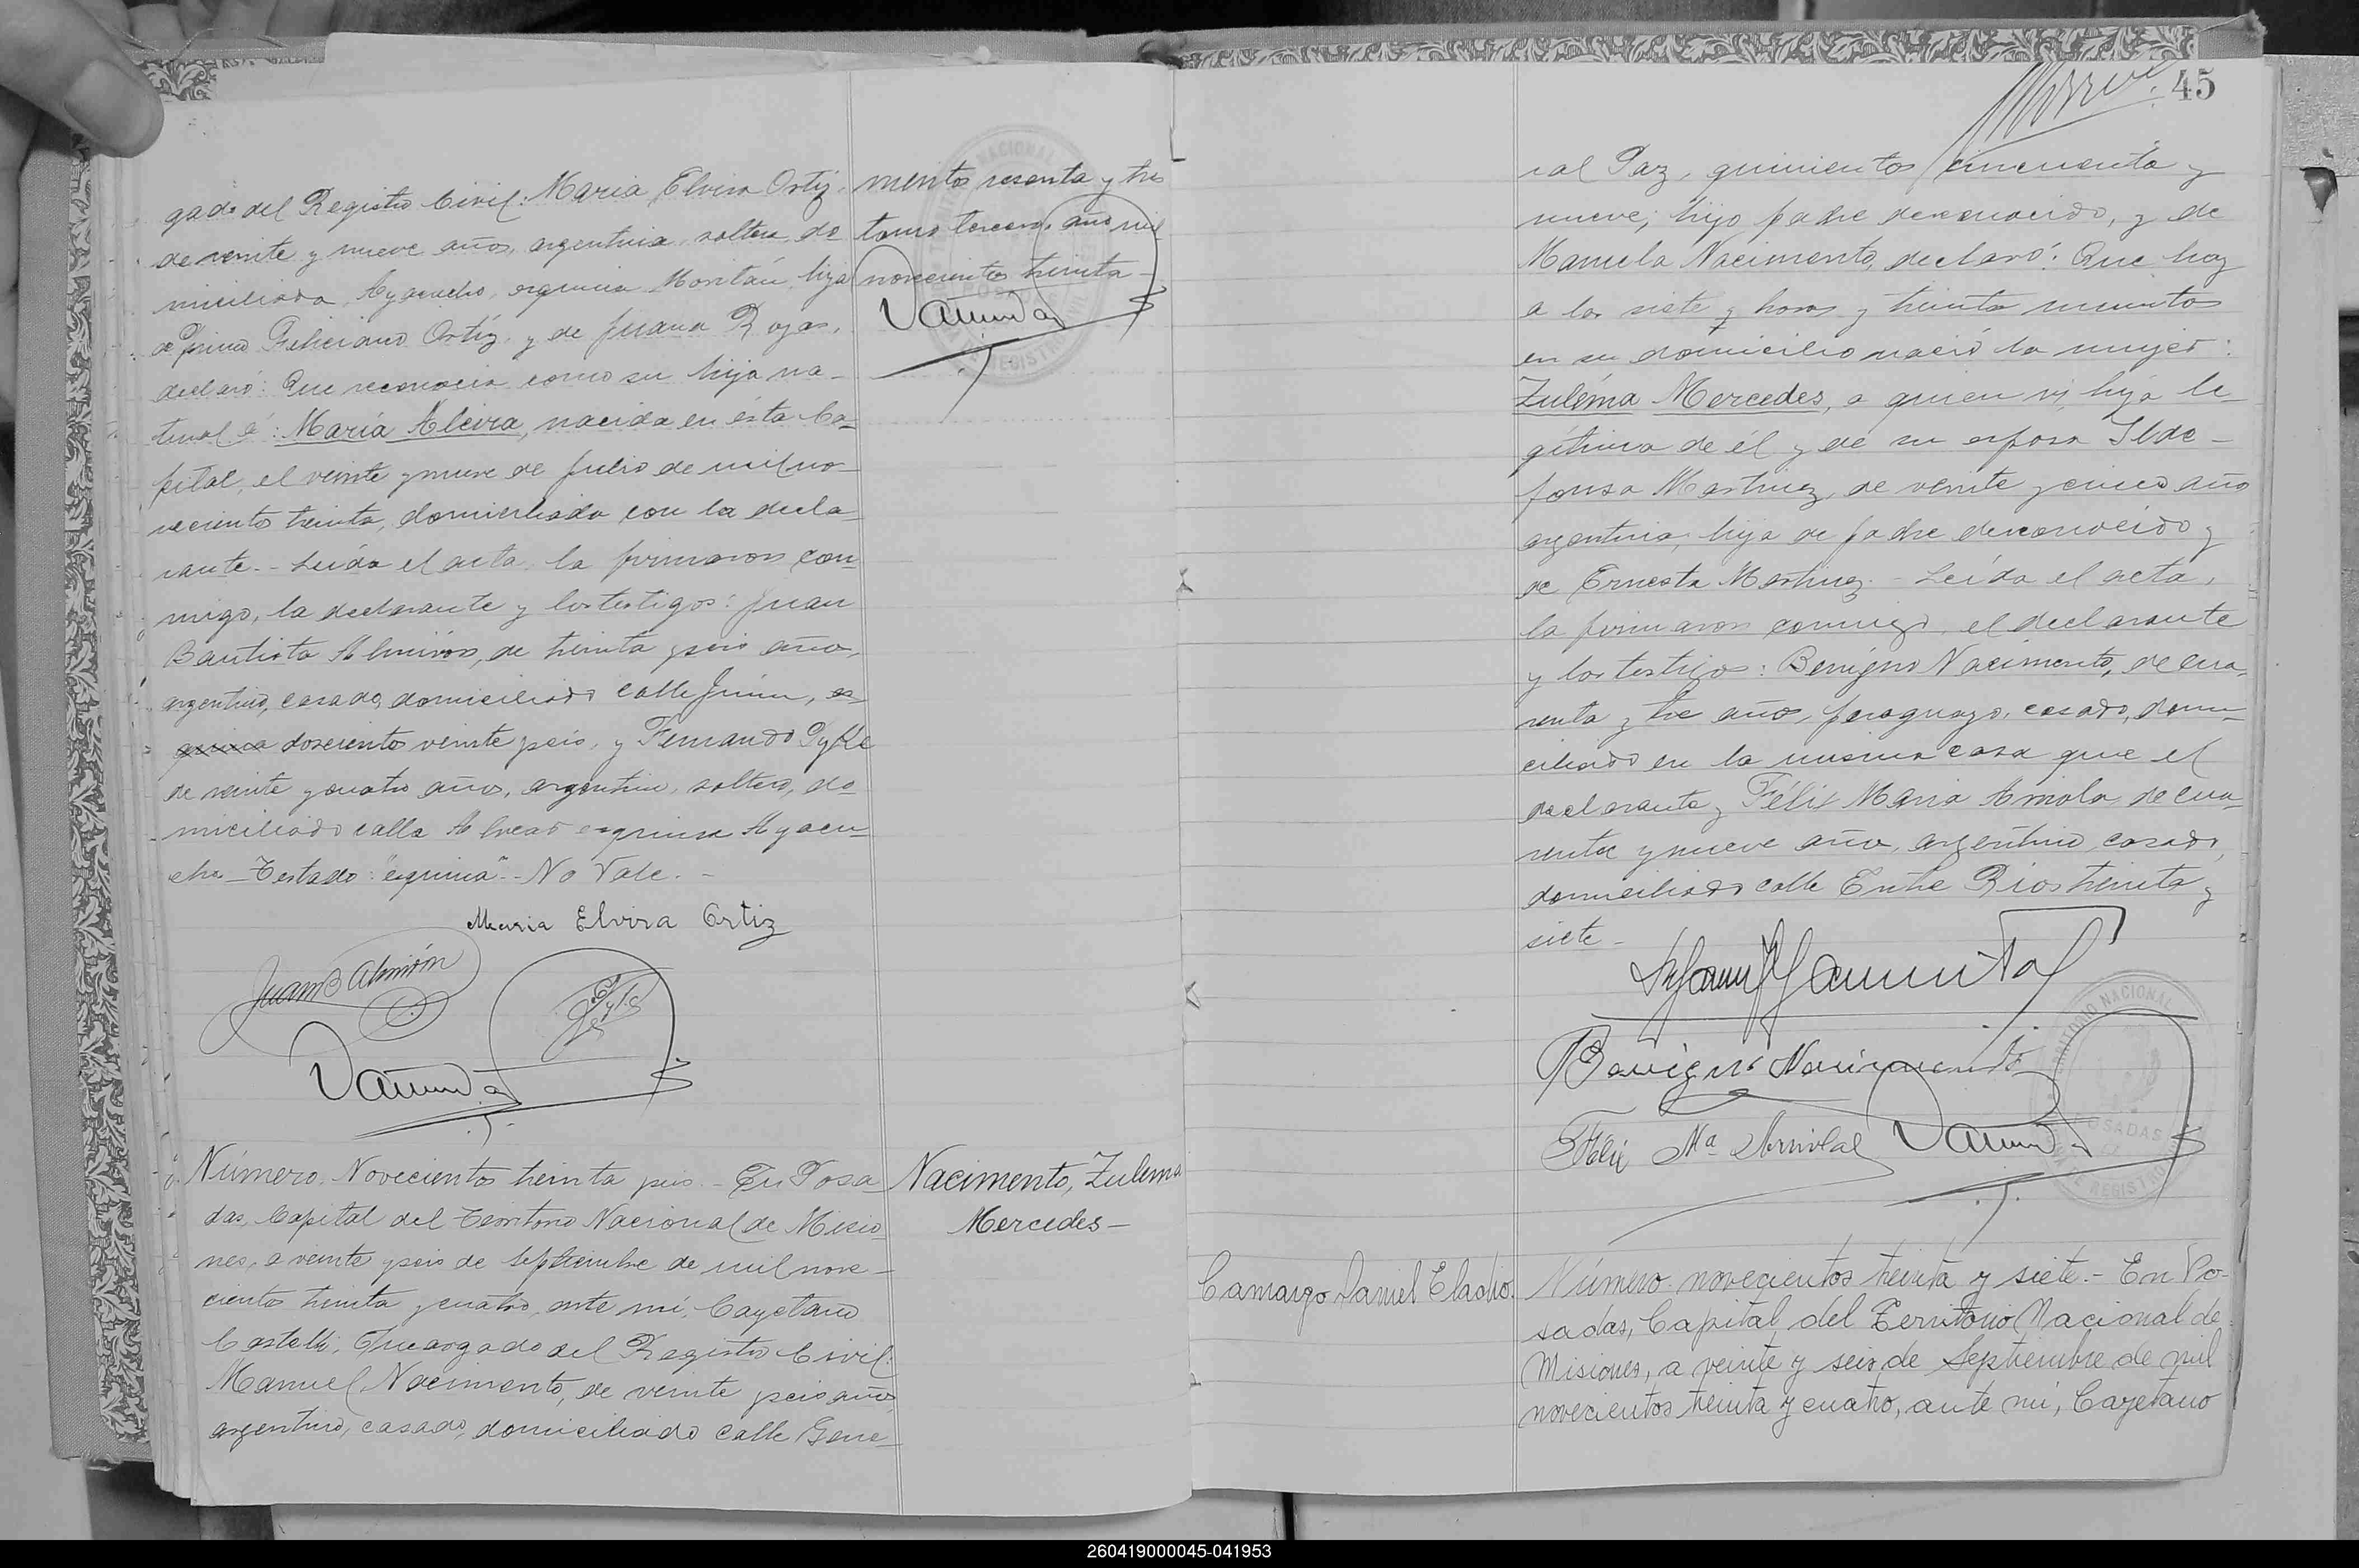 gado del Registro Civil: Maria Elvira Ortiz,
de veinte y nueve años, argentina, soltera, do
miciliada, Ayacucho, esquina Moritán, hija
Feliciano Ortíz, y de Juana Rojas,
declaró: Que reconocia como su hija na-
tural á: María Alcira, nacida en ésta Ca-
pital, el veinte y nueve de Julio de mil no-
vecientos treinta, domiciliada con la decla-
rante.- Leída el acta, la firmaron con-
migo, la declarante y los testigos: Juan
Bautista Almirón, de treinta y seis años,
argentino, casado, domiciliado calle Junin, es
quina doscientos veinte y seis, y Fernando Tykle
de veinte y cuatro años, argentino, soltero, do
miciliado calle Alvear esquina Ayacu-
cho - Testado: "esquina" - No Vale. -
Maria Elvira Ortiz
Juan B Almirón
mentos sesenta y tres
tomo tercero, año mil
novecientos treinta-
Número. Novecientos treinta y seis.- En Posa
das, Capital del Territorio Nacional de Misio
nes, a veinte y seis de Septiembre de mil nove-
cientos treinta y cuatro, ante mí, Cayetano
Castelli, Encargado del Registro Civil:
Manuel Nacimento, de veinte y seis años
argentino, casado, domiciliado calle Gene-
Nacimento, Zulema
Mercedes-
45
ral Paz, quinientos cincuenta y
nueve; hijo padre desconocido, y de
Manuela Nacimento, declaró: Que hoy
a las siete y horas y treinta minutos
en su domicilio nació la mujer:
Zuléma Mercedes, a quien vi, hija le
gitima de él y de su esposa Ilde-
fonsa Martinez, de veinte y cinco años
argentina, hija de padre desconocido y
de Ernesta Martinez.- Leída el acta,
la firmaron conmigo, el declarante
y los testigos: Benigno Nacimento, de cua-
renta y tre años, paraguayo, casado, domi-
ciliado en la misma casa que el
declarante y Félix Maria Arriola, de cua-
renta y nueve años, argentino, casado,
domiciliado calle Entre Rios treinta y
siete-
Benigno Nacimento
Felix Ma Arriola
TERRITORIO NACIONAL
POSADAS
DE REGISTRO
Camargo Daniel Eladio.
Número novecientos treinta y siete.- En Po-
sadas, Capital del Territorio Nacional de
Misiones, a veinte y seis de Septiembre de mil
novecientos treinta y cuatro, ante mí, Cayetano
260419000045-041953